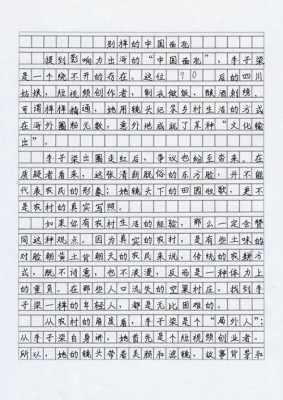 别样的中国面孔
提到影响力出海的“中国面孔”，李子柒
是一个绕不开的存在。这位90后的四川
姑娘，短视频创作者，制衣做饭，酿酒刺绣，
可谓样样精通，她用镜头记录乡村生活的方式
在海外圈粉无数，意外地成就了某种“文化输
出”。
李子柒出圈走红后，争议也纷至沓来。在
质疑者看来，这张清新脱俗的东方脸，并不能
代表农民的形象；她镜头下的田园牧歌，更不
是农村的真实写照。
如果你有农村生活的经验，那么一定会赞
同这种观点。因为真实的农村，是有些土味的
对脸朝黄土背朝天的农民来说，传统的农耕方
式，既不诗意，也不浪漫，反而是一种体力上
的重负。在那些人口流失的空巢村庄，找到李
子柒一样的年轻人，都是无比困难的。
从农村的角度看，李子柒是个“局外人”；
从李子柒自身讲，她首先是个短视频创业者。
所以，她的镜头带着美颜和滤镜，故事背景和